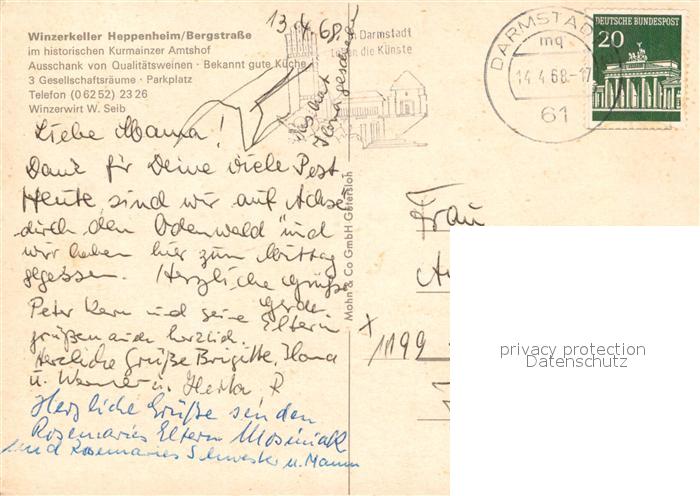 Winzerkeller Heppenheim/Bergstraße
im historischen Kurmainzer Amtshof
Ausschank von Qualitätsweinen · Bekannt gute Küche
3 Gesellschaftsräume · Parkplatz
Telefon (0 62 52) 23 26
Winzerwirt W. Seib
13.4.68
Liebe Mama!
Dank für Deine viele Post
Heute sind wir auf Achse
durch den Odenwald und
wir haben hier zum Mittag
gegessen. Herzliche Grüße
Gerda.
Peter Kern und seine Eltern
grüßen auch herzlich.
Herzliche Grüße Brigitte, Ilona
u. Werner u. Herta R
Herzliche Grüße senden
Rosemaries Eltern
und Rosemaries Schwester u. Mann
das hat
Ilona geschrieben!
Mohn & Co GmbH Gütersloh
Darmstadt
die Künste
DARMSTADT
mq
14.4.68.-17
61
DEUTSCHE BUNDESPOST
20
Frau
x
1199
privacy protection
Datenschutz